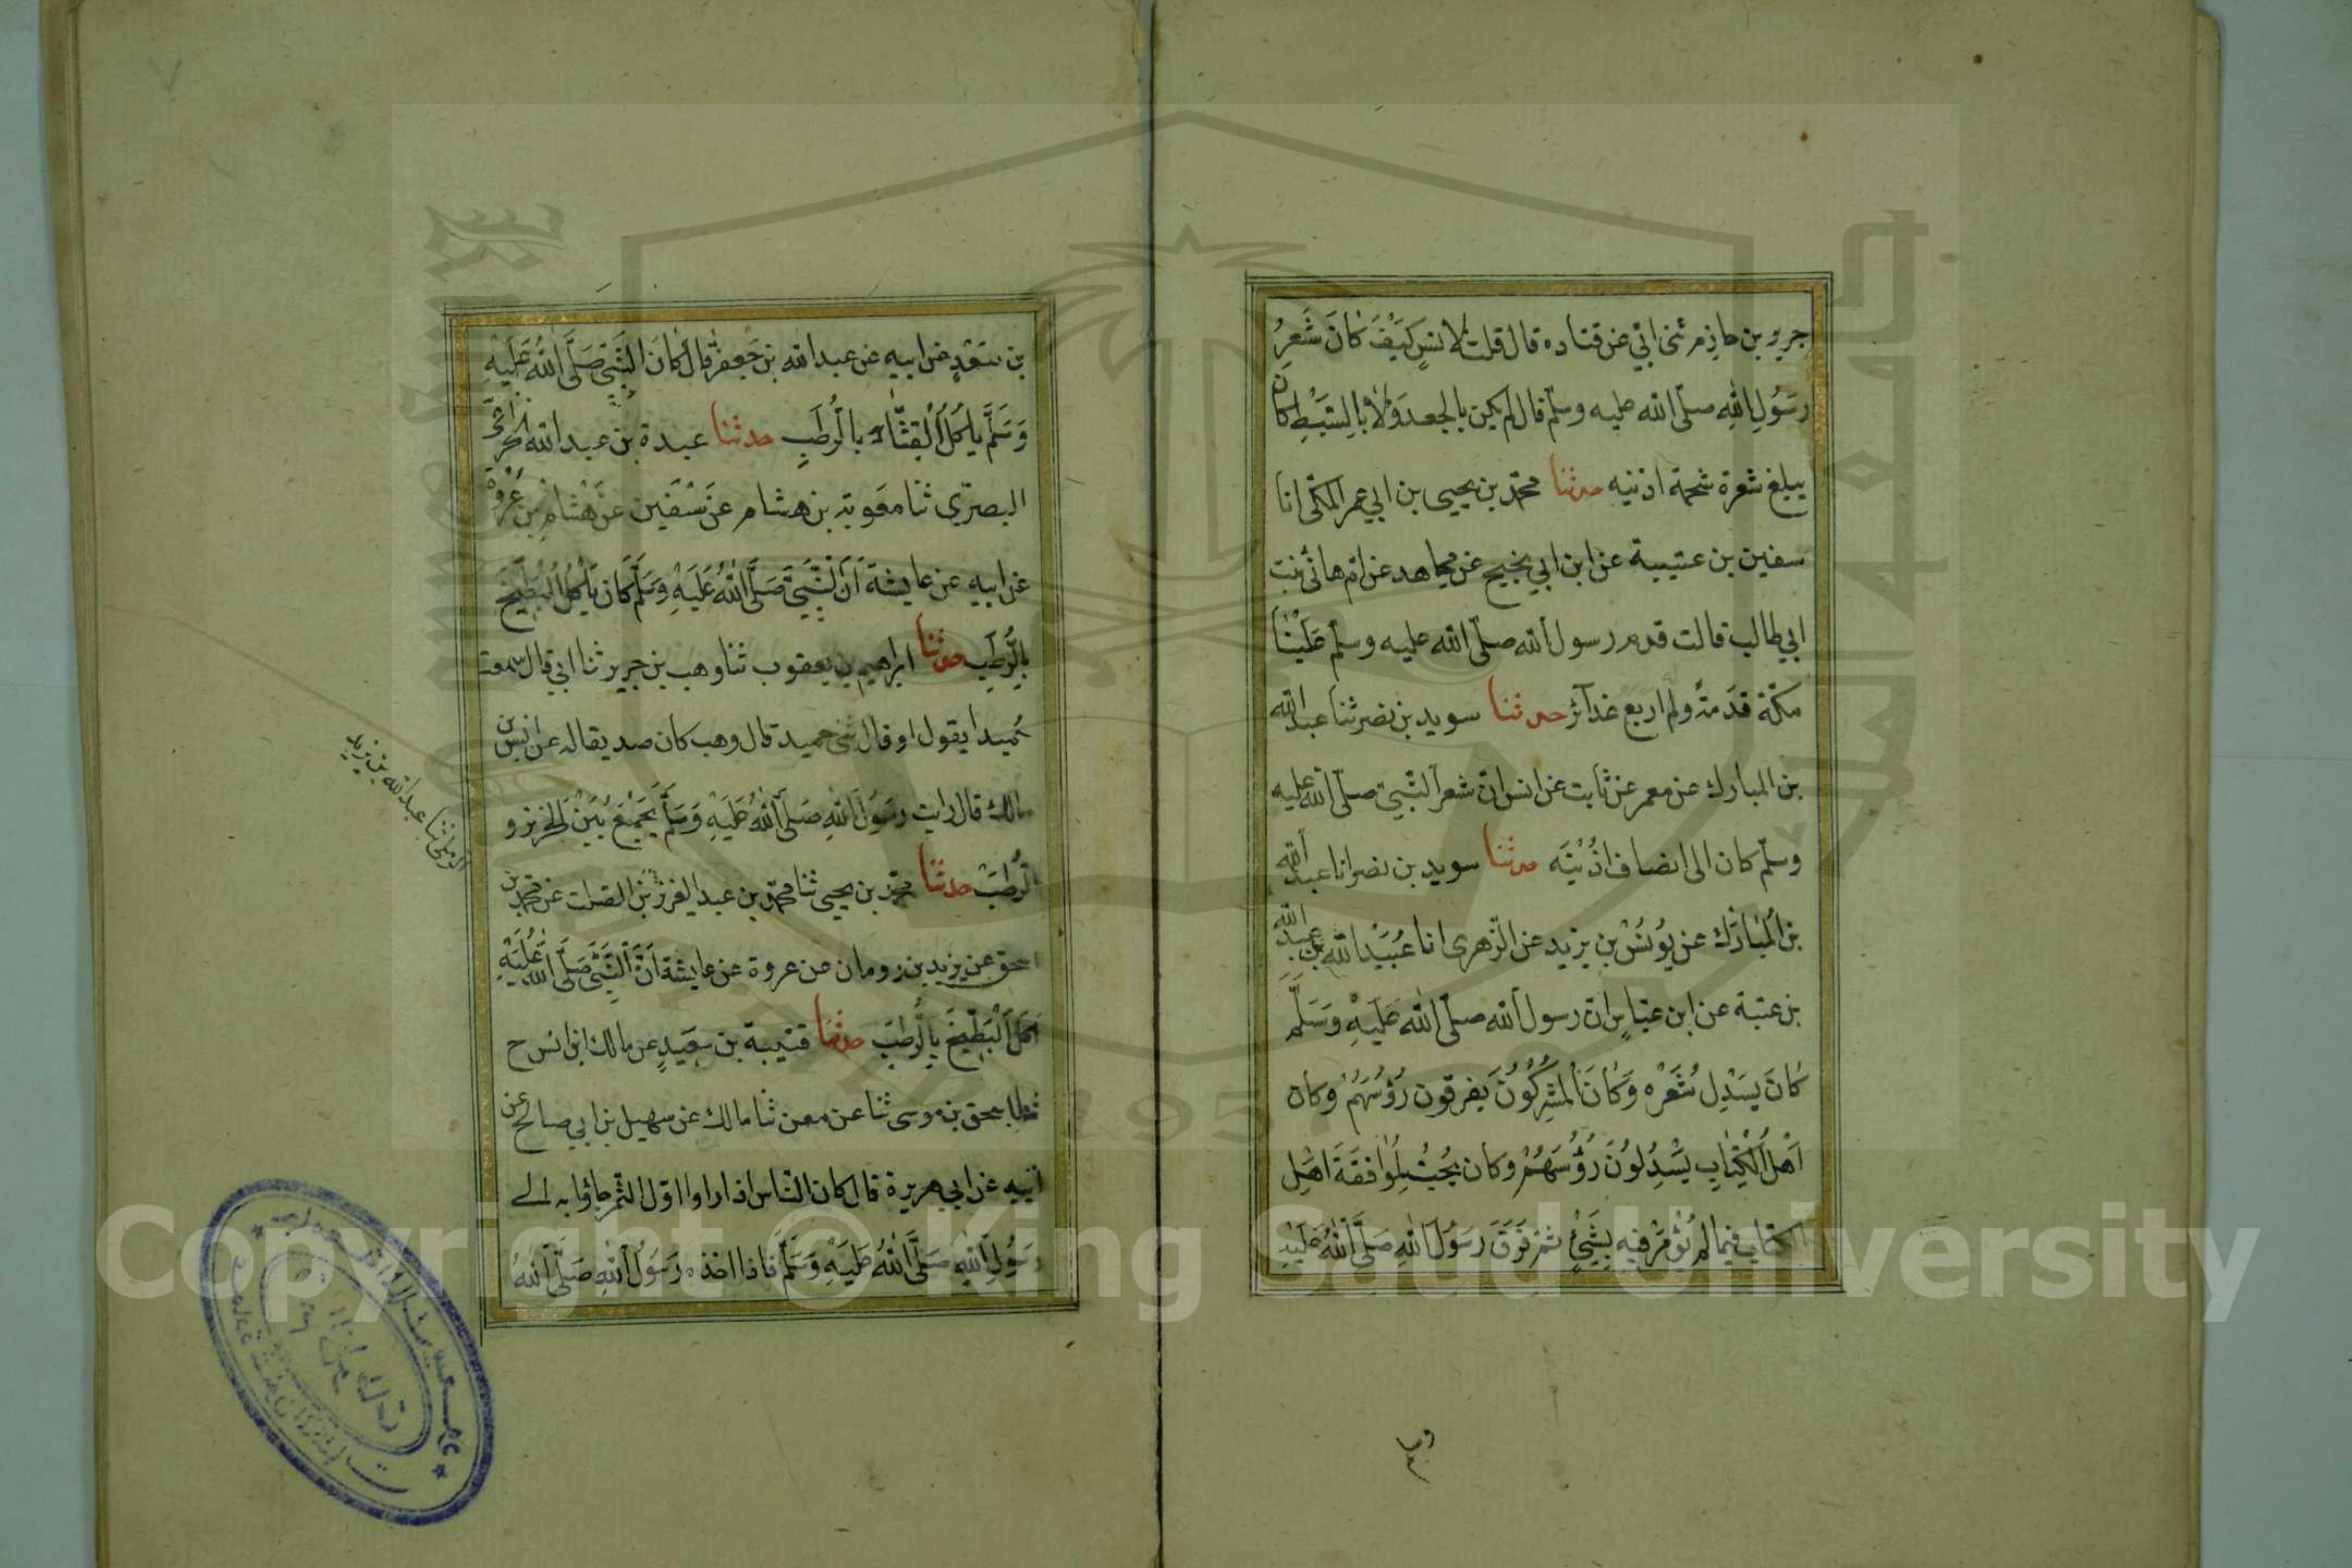 جرير بن حازم ثنى ابي عن قتاده قال قلت لانس كَيْفَ كَانَ شَعرُ
رسُولِ اللهِ صلّى الله عليه وسلّم قال لم يكن بالجعد وَلَا بالسَّبْطِ كان
يبلغ شعرة شحمة اذنيه حدثنا محمّد بن يحيى بن ابي عمر المكّى انا
سفين بن عتيبة عن ابن ابي نجيح عن مجاهد عن امّ هانئ بنت
ابي طالب قالت قدم رسول الله صلّى الله عليه وسلّم عَلَيْنَا
مكّة قَدمَةً وله اربع غدآئر حدثنا سويد بن نصر ثنا عبد الله
بن المبارك عن معمر عن ثابت عن انس انّ شعر النّبيّ صلّى الله عليه
وسلّم كان الى انصاف اذُنَيْه حدثنا سويد بن نصر انا عبد الله
بن المُبَارَك عن يُونُسْ بن يزيد عن الزّهرى انا عُبَيْد الله بن عبد الله
بن عتبة عن ابن عبّاس انّ رسول الله صلّى الله عَلَيْهِ وَسَلَّمَ
كَانَ يَسْدِل شَعْرَه وَكَانَ المُشِركُونَ يفرقون رُؤسَهُمْ وكان
اَهْلُ الْكِتَابِ يَسْدِلُونَ رُؤُسَهُمْ وكان يُحِبُّ مُوَافقَةَ اهْلِ
الكتاب فيما لم يُؤْمَرْ فيهِ بِشَيْءٍ ثمّ فَرَقَ رسُولُ اللهِ صَلَّى اللهُ عَلَيْهِ
وسلم
بن سَعْدٍ عن ابيه عن عبد الله بن جَعفر قال كانَ النَّبِيّ صَلَّى اللهُ عَلَيْهِ
وَسَلَّمَ يأكُلُ الْقِثَّاءَ بالرُّطَبِ حدثنا عبدة بن عبد الله الخزاعىّ
البصرىّ ثنا معوية بن هشام عَنْ سُفْيَن عَنْ هِشَامِ بن عُرْوة
عن ابيه عن عايشة اَنَّ النَّبِيَّ صَلَّى اللهُ عَلَيْهِ وَسَلَّمَ كَانَ يَأْكُلُ الْبِطّيخَ
بالرُّطَبِ حدثنا ابراهيم بن يعقوب ثنا وهب بن جرير ثنا ابي قال سمعت
حُميدا يقول او قال ثنى حميد قال وهب كان صديقا له عن انس بن
مالك قال رايت رسُولَ اللهِ صَلَّى اللهُ عَلَيْهِ وَسَلَّمَ يَجْمَعُ بَيْنَ الخربز و
الرُّطَبِ حدثنا محمّد بن يحيى ثنا محمّد بن عبد العزيز بن الصلت عن محمّد بن
الرملى ثنا عبد الله بن يزيد
اسحق عن يزيد بن رومان عن عروة عن عايشة اَنَّ النَّبِيَّ صَلَّى اللهُ عَلَيْهِ
اكَلَ الْبَطِّيخَ بِالرُّطَبِ حدثنا قتيبة بن سعيدٍ عن مالك ابن انس ح
ثنا اسحق بن موسى ثنا عن معن ثنا مالك عن سهيل بن ابي صالح عن
اَبيهِ عن ابي هريرة قال كان النّاس اذا راوا اوّل الثّمر جاؤا به الى
رَسُولِ اللهِ صَلَّى اللهُ عَلَيْهِ وَسَلَّمَ فاذا اخذه رَسُولُ اللهِ صَلَّى اللهُ
Copyright © King Saud University